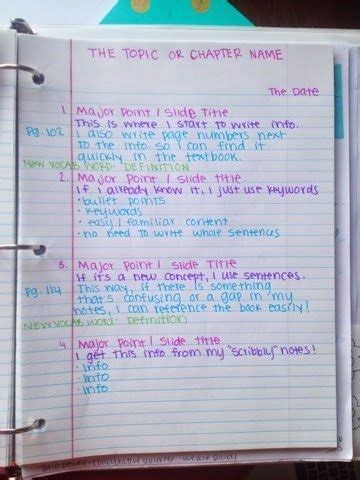 THE TOPIC OR CHAPTER NAME
The Date
1. Major Point / Slide Title
This is where I start to write info.
Pg. 102 I also write page numbers next
to the info so I can find it
quickly in the textbook.
NEW VOCAB WORD- DEFINITION
2. Major Point / Slide title
If I already know it, I just use keywords
• bullet points
• keywords
• easy / familiar content
• no need to write whole sentences
3. Major Point / Slide Title
If it's a new concept, I use sentences.
Pg. 114 This way, if there is something
that's confusing or a gap in my
notes, I can reference the book easily!
NEW VOCAB WORD- Definition
4. Major Point / Slide title
I get this info from my "scribbly" notes!
• info
• info
• info